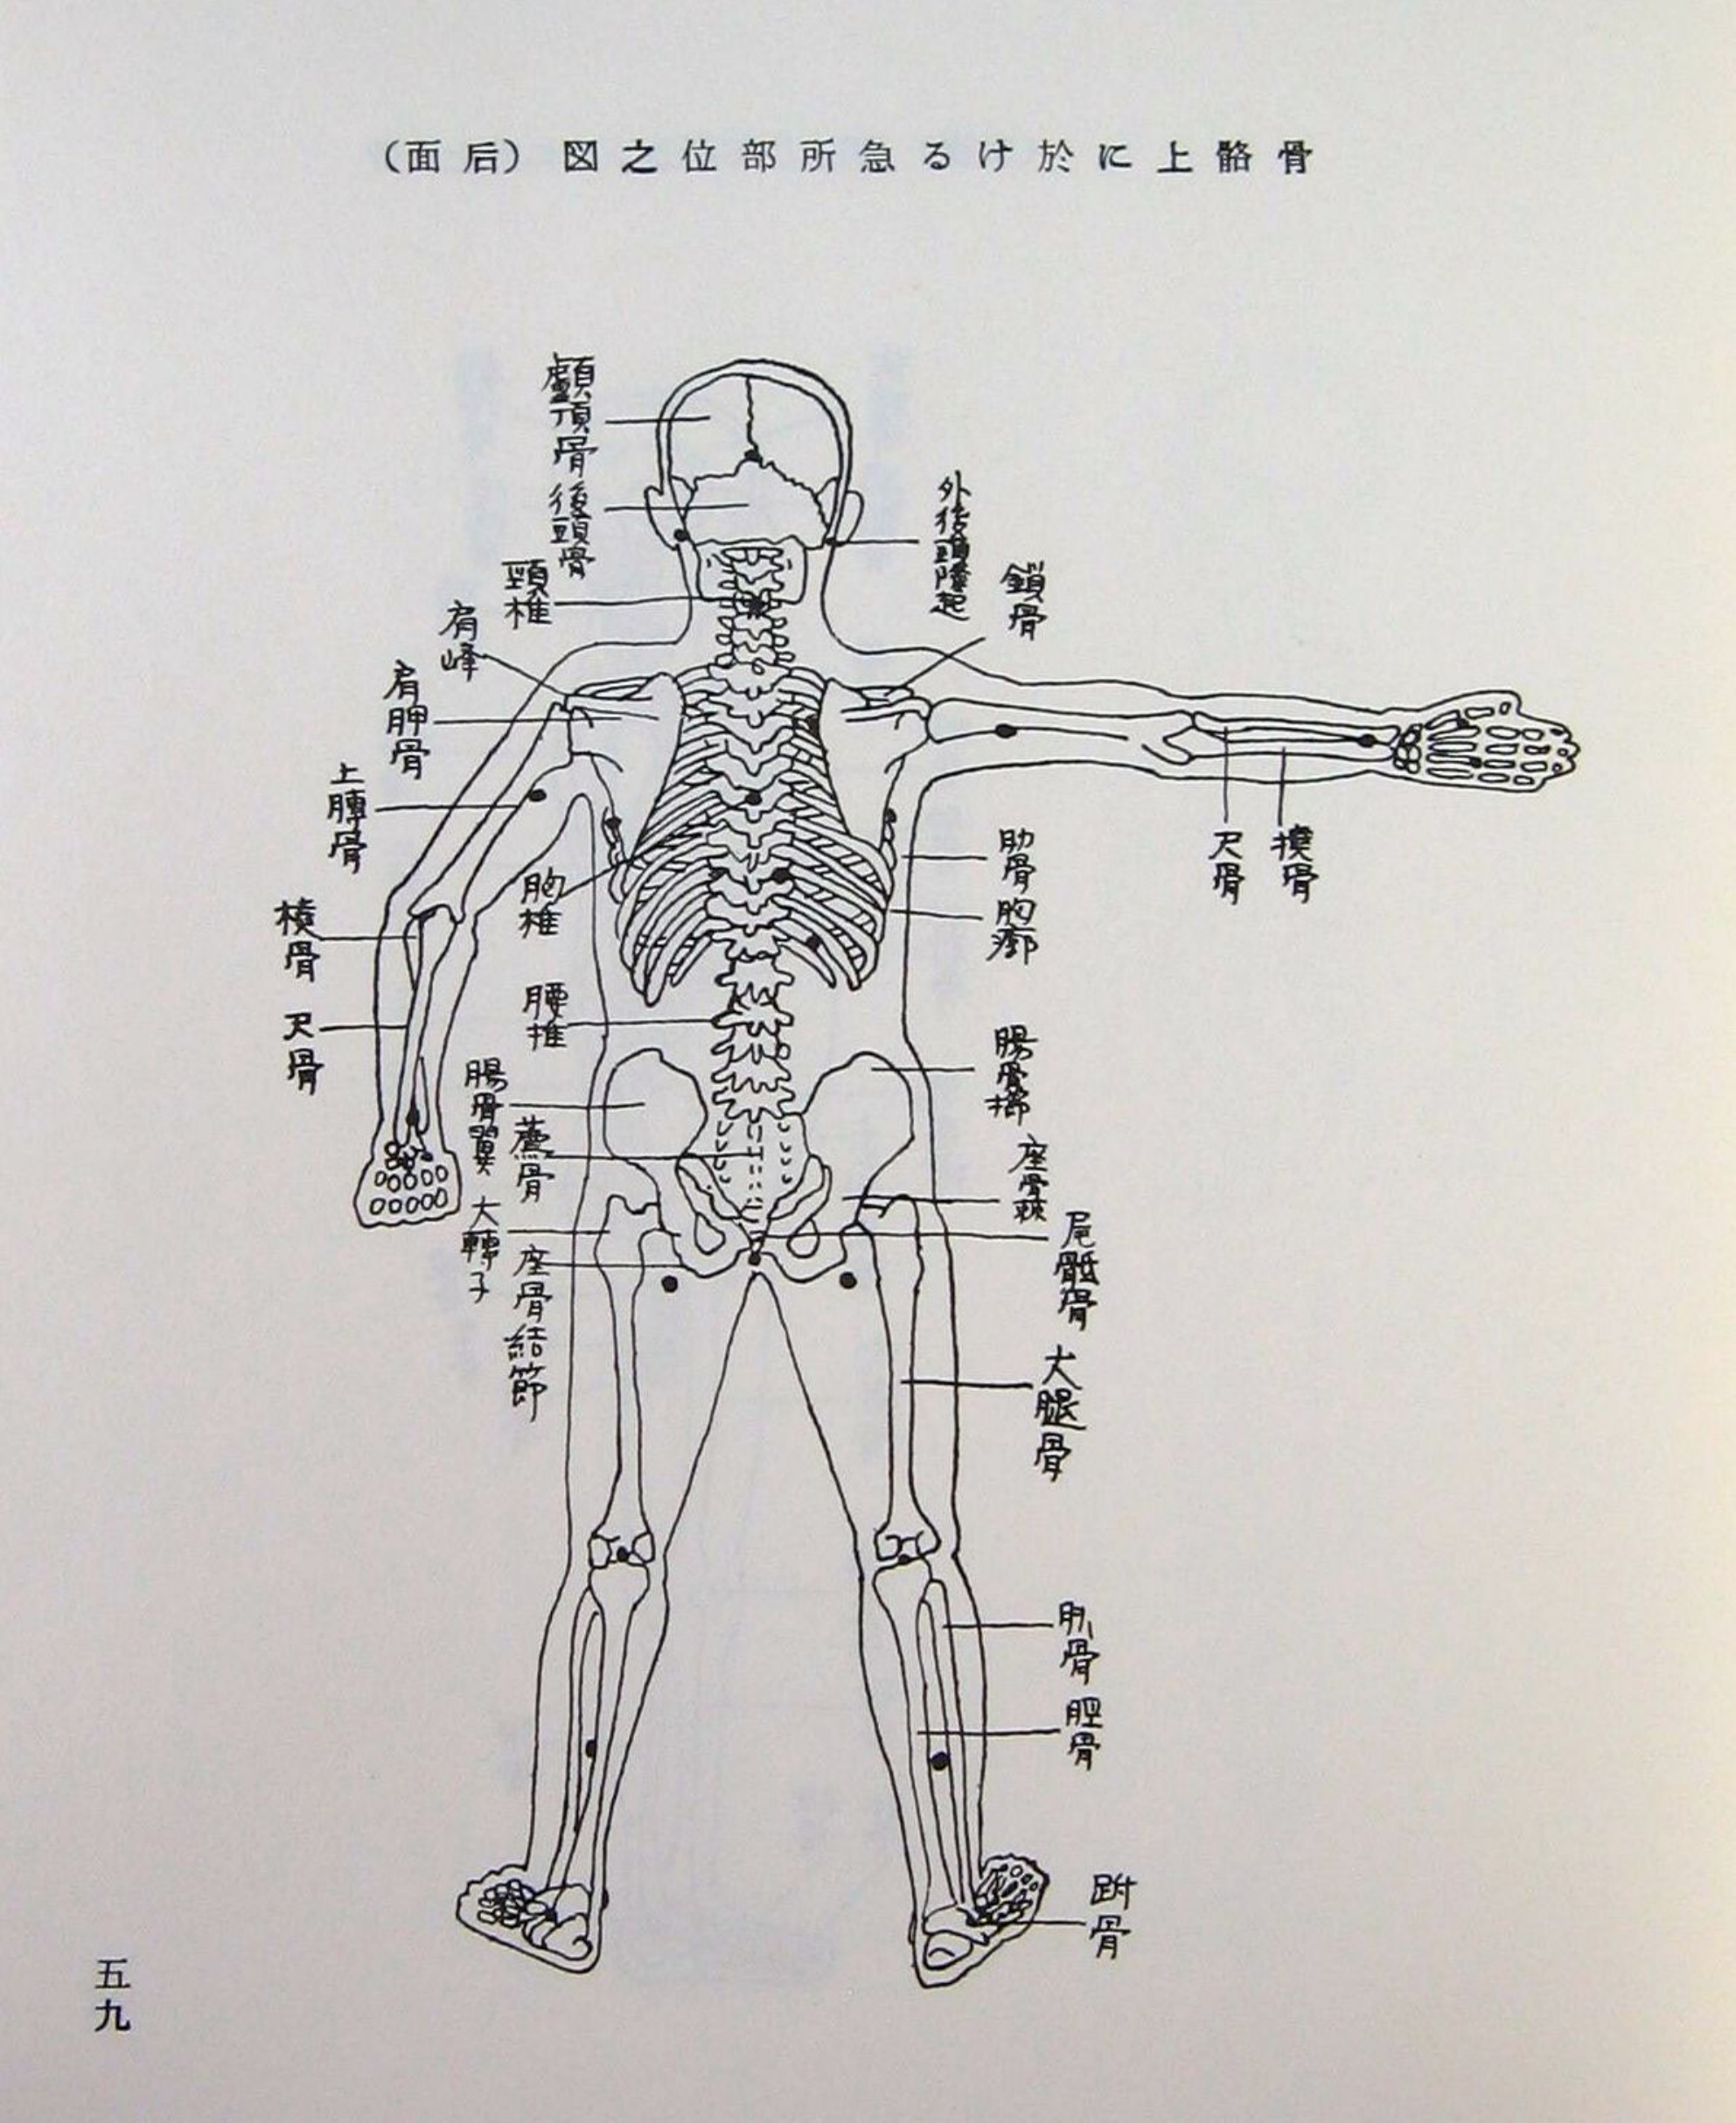 骨骼上に於ける急所部位之図（后面）
顱頂骨
後頭骨
頸椎
肩峰
肩胛骨
上膊骨
胸椎
尺骨
腰椎
腸骨翼
薦骨
大轉子
座骨結節
外後頭隆起
鎖骨
尺骨
肋骨
胸廓
腸骨櫛
座骨棘
尾骶骨
大腿骨
脛骨
跗骨
五九